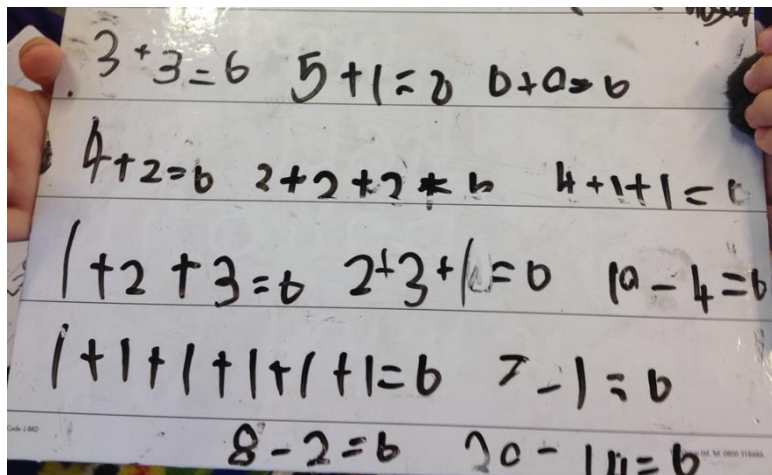 3+3=6 5+1=6 6+0=6
4+2=6 2+2+2=6 4+1+1=6
1+2+3=6 2+3+1=6 10-4=6
1+1+1+1+1+1=6 7-1=6
8-2=6 20-14=6